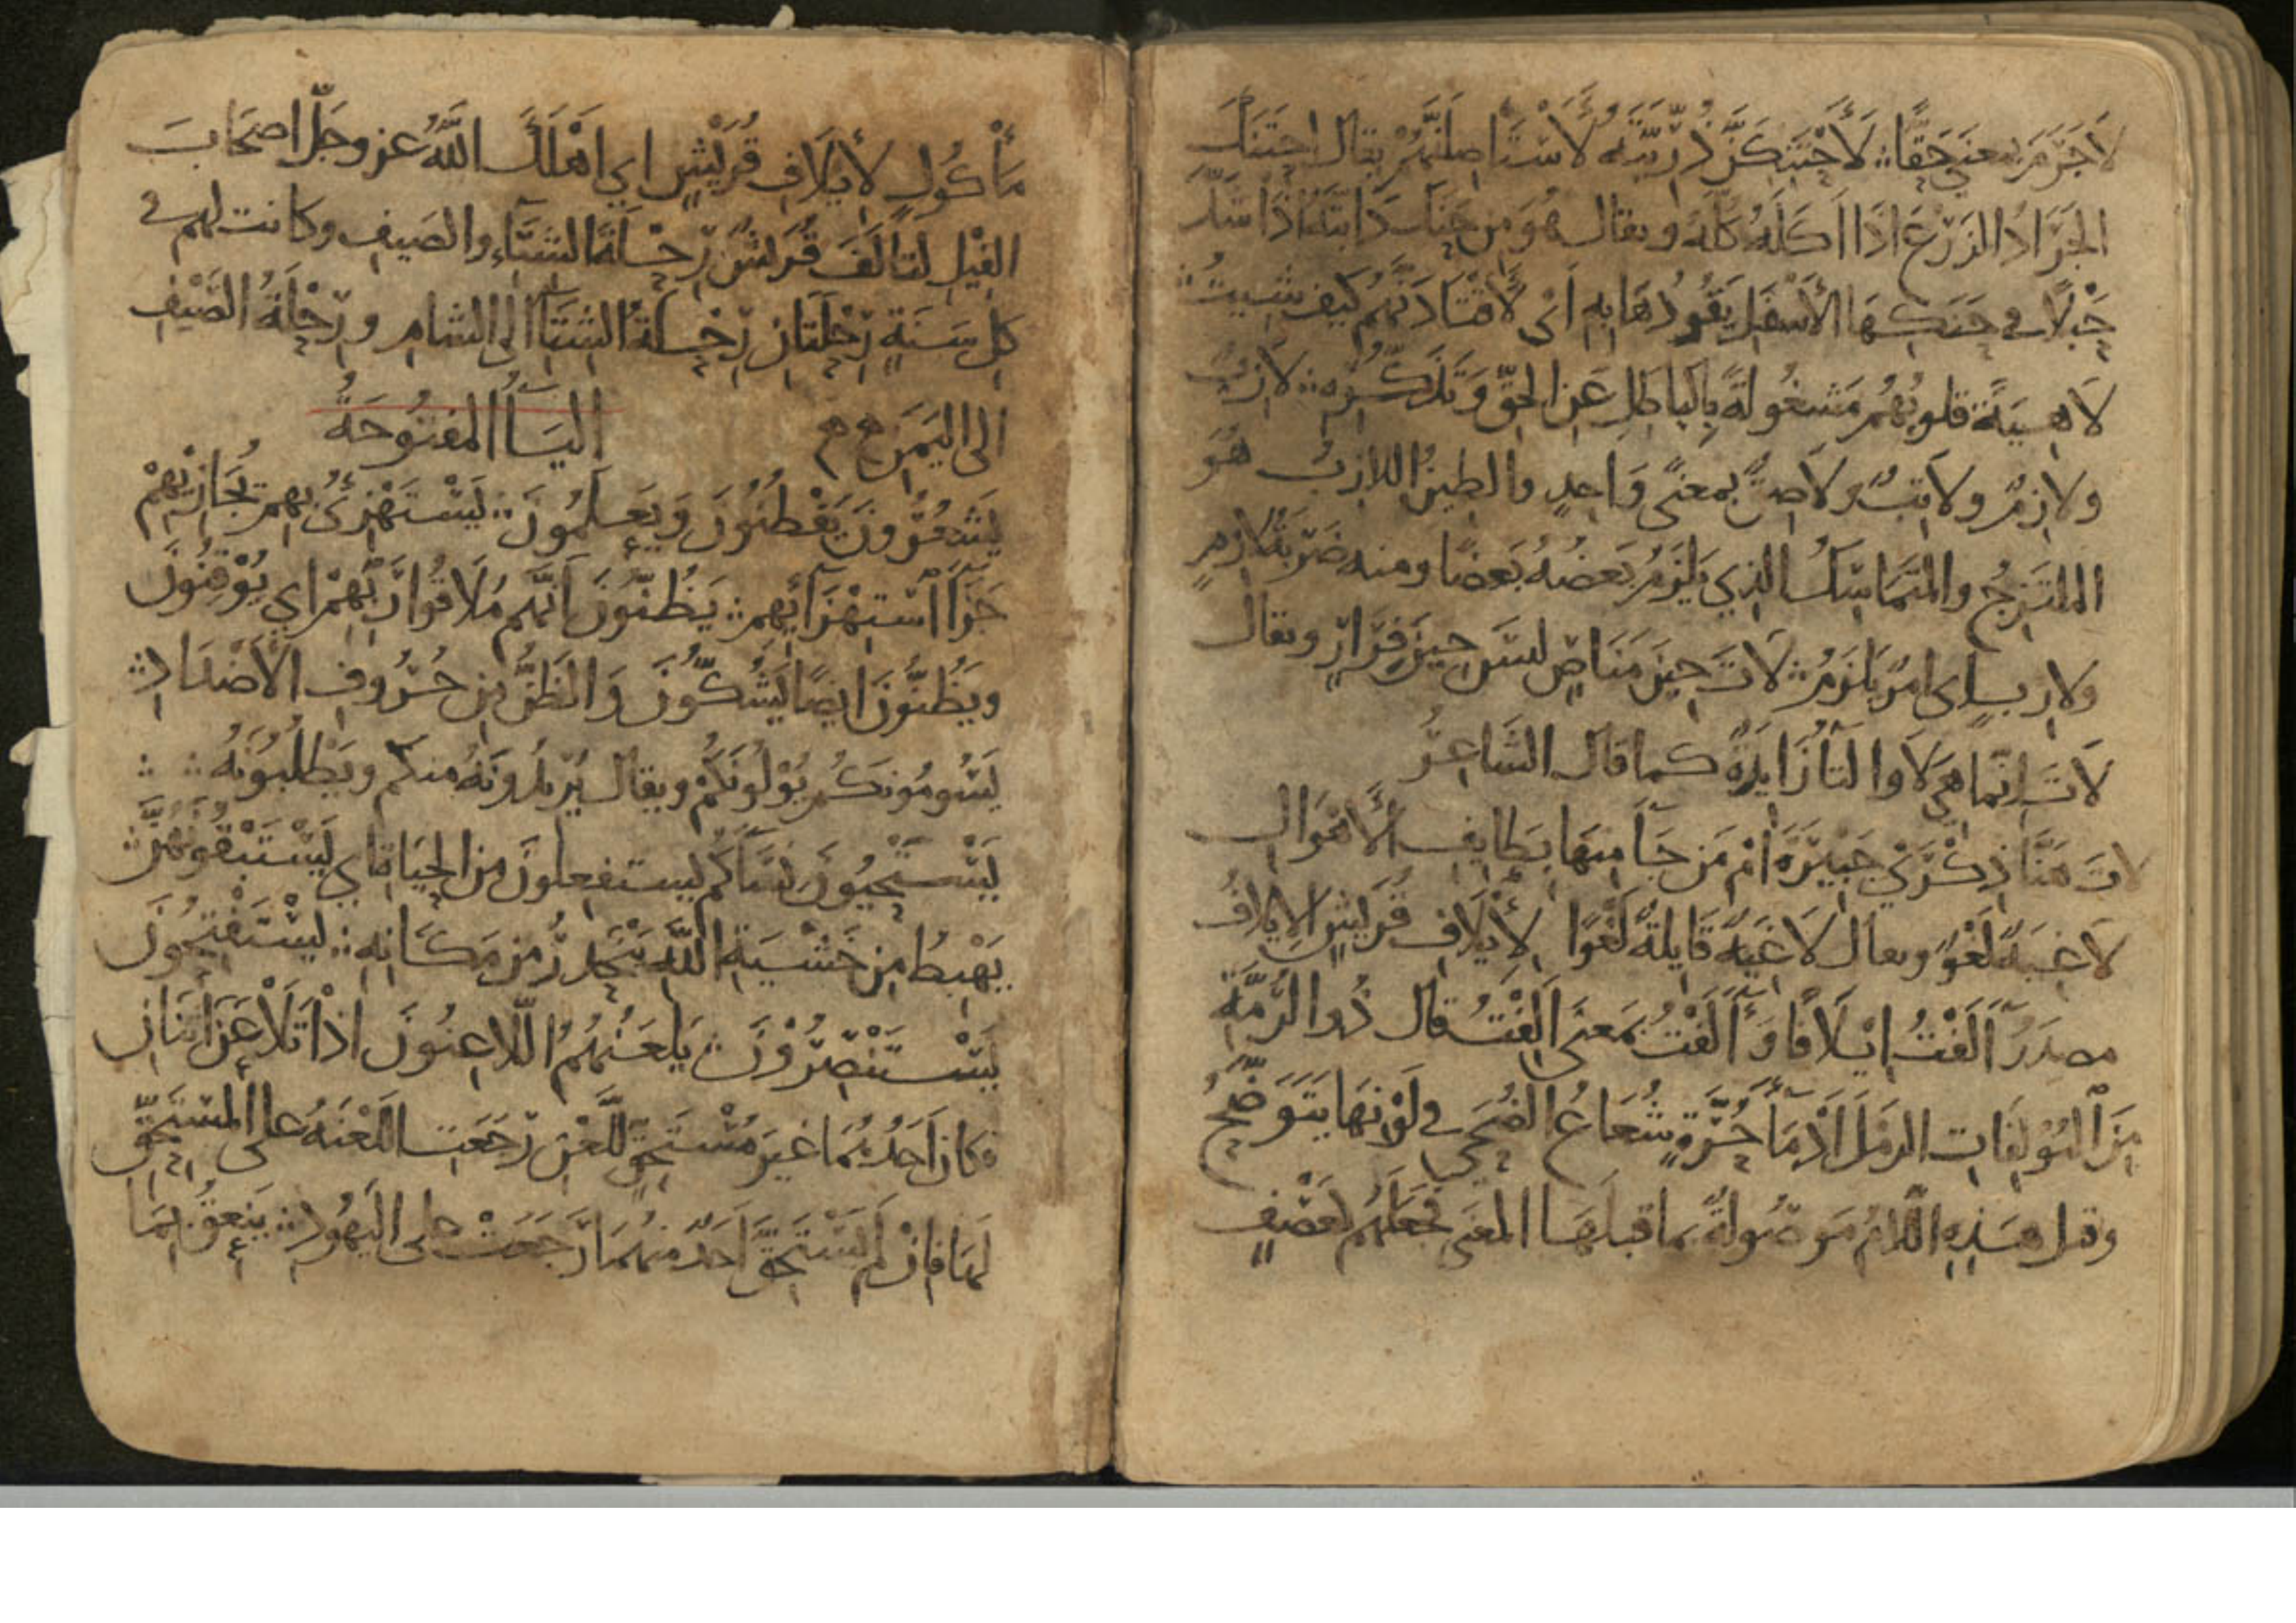 لَاجَرَمَ بمعنى حَقًّا ؞ لَأَحْتَنِكَنَّ ذُرِّيَّتَهُ لَأَسْتَأصِلَنَّهُمْ يقال احتَنَكَ
الجَرَادُ الزَرْعَ اذَا اَكَلَهُ كُلَّهُ ويقال هُوَ مِن حَنَكَ دَابَّتَهُ اذَا شَدَّ
حَبْلًا في حَنَكِهَا الأَسْفَلِ يَقُودُهَا بِهِ اَىْ لَأَقْتَادَنَّهُمْ كَيفَ شِيتُ ؞
لَاهِيَةً قلوبُهُم مَشغُولَةً بِالبَاطِلِ عَنِ الحَقِّ وَتَذَكُّرِهِ ؞ لَازِبٌ
ولازِمٌ ولاتِبٌ ولَاصِقٌ بمعنًى وَاحِدٍ والطِينُ اللازِبُ هُوَ
الملتَزِجُ والمتَمَاسِكُ الذِي يَلْزَمُ بَعضُهُ بَعضًا ومنه ضَرْبَةُ لَازِمٍ
ولازبٍ اى امرٌ يَلزَمُ ؞ لَاتَ حِينَ مَنَاصٍ ليسَ حِينَ فِرَارٍ ويقال
لَاتَ اِنّمَا هِىَ لَا والتَآُ زَايِدَةٌ كما قال الشَاعِرُ
لاتَ هَنَّا ذِكْرَى جُبَيْرَةَ أَمْ مَن جَآَ مِنهَا بِطَايِفِ الأَهْوَالِ
لَاغِيَةً لَغْوًا ويقال لَاغِيَةً قَايِلةً لَغْوًا لِأيلَافِ قُرَيشٍ الايلَافُ
مصدَرُ آلَفْتُ ايلَافًا وَآلَفْتُ بمَعنَى أَلِفْتُ قال ذُو الرُّمَّةِ
مِنَ المُؤلِفَاتِ الرَملَ اَدْمَآُ حُرَّةٌ شُعَاعُ الضُحَى في لَوْنِهَا يَتَوَضَّحُ
وقيل هَذِهِ اللَامُ مَوصُولَةٌ بما قبلَهَا المعنى فجَعَلَهُم كعَصْفٍ
مَأْكُولٍ لأيلَافِ قُرَيْشٍ اي اهْلَكَ اللَّهُ عز وجَلّ اصحَابَ
الفِيلِ لتَالَفَ قُرَيشٌ رِحْلَةَ الشِتَآءِ والصَيفِ وكانت لهم في
كل سَنَةٍ رِحْلَتَانِ رِحْلَةُ الشِتَآ الى الشام ورِحْلَةُ الصَيْفِ
الى اليَمَن
اليَآُ المفتُوحَةُ
يَشعُرُونَ يَفْطُنُونَ وَيَعلَمُونَ ؞ يَسْتَهْزِئُ بِهِم يُجَازِيْهِمْ
جَزَآَ استِهْزَآئِهِم ؞ يَظُنُّونَ اَنَّهُم مُلَاقُوا رَبِّهِمْ اي يُوْقِنُونَ
ويَظُنُّونَ ايضًا يَشُكّونَ وَالظَنُّ مِن حُرُوفِ الأَضْدَادِ ؞
يَسُومُونَكُم يُوْلُونَكُمْ ويقال يُرِيدُونَهُ منكُم ويَطْلُبُونَهُ ؞ ؞
يَسْتَحْيُونَ نِسَآكُم يستفعلونَ مِن الحَيَاةِ اي يَسْتَبْقُونَهُنَّ ؞
يَهْبِطُ مِن خَشْيَةِ اللَّهِ يَنْحَدِرُ مِن مَكَانِهِ ؞ يَسْتَفْتِحُونَ
يَسْتَنْصِرُوْنَ ؞ يَلعَنُهُمُ اللّاعِنُونَ اذَا تَلَاعَنَ اثنَانِ
فكانَ اَحَدُهُمَا غيرَ مُسْتَحِقٍّ للّعْنِ رَجَعَتِ اللَعْنَةُ على المستَحِقِّ
لهَا فان لم يَسْتَحِقَّ اَحَدٌ منهُمَا رَجَعَتْ على اليَهُودِ ؞ يَنعِقُ بِمَا